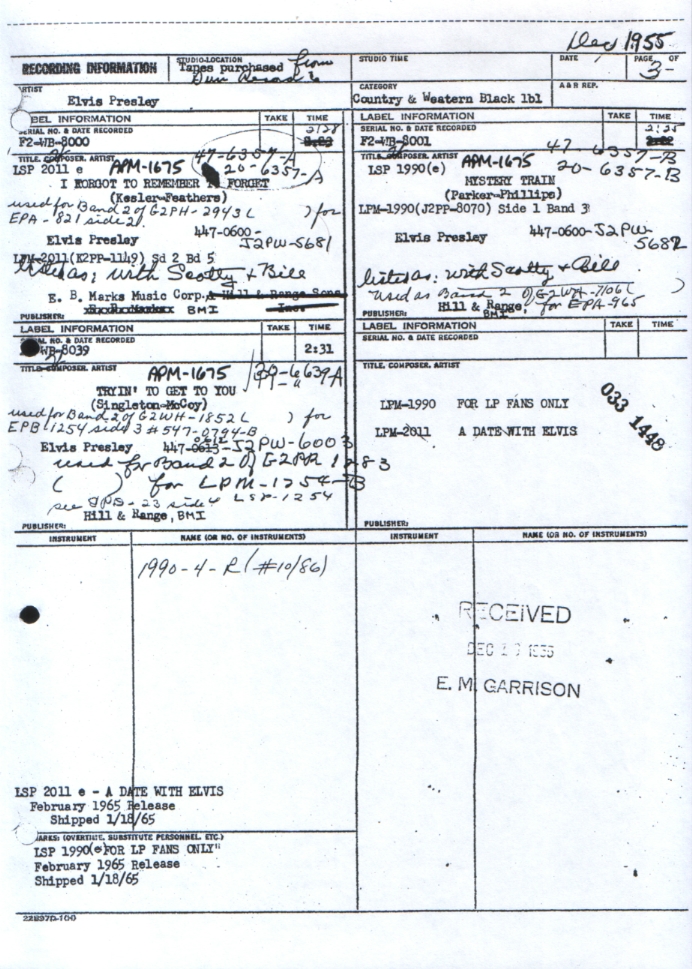 Dec 1955
RECORDING INFORMATION
STUDIO-LOCATION
Tapes purchased from
Sun Records
STUDIO TIME
DATE
PAGE OF
3-
ARTIST
Elvis Presley
CATEGORY
Country & Western Black lbl
A & R REP.
LABEL INFORMATION TAKE TIME
SERIAL NO. & DATE RECORDED
F2-WB-8000
2:28
47-6357-A
TITLE, COMPOSER, ARTIST
LSP 2011 e APM-1675 20-6357-A
I FORGOT TO REMEMBER TO FORGET
(Kesler-Feathers)
used for Band 2 of G2PH-2943 ( ) for
EPA-821 side 2
447-0600-
Elvis Presley J2PW-5681
LPM-2011(K2PP-1149) Sd 2 Bd 5
listed as: with Scotty & Bill
E. B. Marks Music Corp.
PUBLISHER: BMI
LABEL INFORMATION TAKE TIME
SERIAL NO. & DATE RECORDED
F2-WB-8001
2:21
47-6357-B
TITLE, COMPOSER, ARTIST
LSP 1990(e) APM-1675 20-6357-B
MYSTERY TRAIN
(Parker-Phillips)
LPM-1990(J2PP-8070) Side 1 Band 3
447-0600-J2PW-
Elvis Presley 5682
listed as: with Scotty & Bill
used as Band 2 of G2WH-7106 ( )
Hill & Range, for EPA-965
PUBLISHER: BMI
LABEL INFORMATION TAKE TIME
SERIAL NO. & DATE RECORDED
WB-8039 2:31
TITLE, COMPOSER, ARTIST
APM-1675 20-6639A
TRYIN' TO GET TO YOU
(Singleton-McCoy)
used for Band 2 of G2WH-1852 ( ) for
EPB 1254 side 3 #547-0794-B
Elvis Presley 447-0613-J2PW-6003
0612
used for Band 2 of G2PR 1283
( ) for LPM-1254-B
see SPD-23 side 4 LSP-1254
PUBLISHER: Hill & Range, BMI
LABEL INFORMATION TAKE TIME
SERIAL NO. & DATE RECORDED
TITLE, COMPOSER, ARTIST
LPM-1990 FOR LP FANS ONLY
LPM-2011 A DATE WITH ELVIS
033 1448
PUBLISHER:
INSTRUMENT NAME (OR NO. OF INSTRUMENTS) INSTRUMENT NAME (OR NO. OF INSTRUMENTS)
1990-4-R (#10/86)
RECEIVED
DEC 1955
E. M. GARRISON
LSP 2011 e - A DATE WITH ELVIS
February 1965 Release
Shipped 1/18/65
(OVERTIME, SUBSTITUTE PERSONNEL, ETC.)
LSP 1990(e)FOR LP FANS ONLY"
February 1965 Release
Shipped 1/18/65